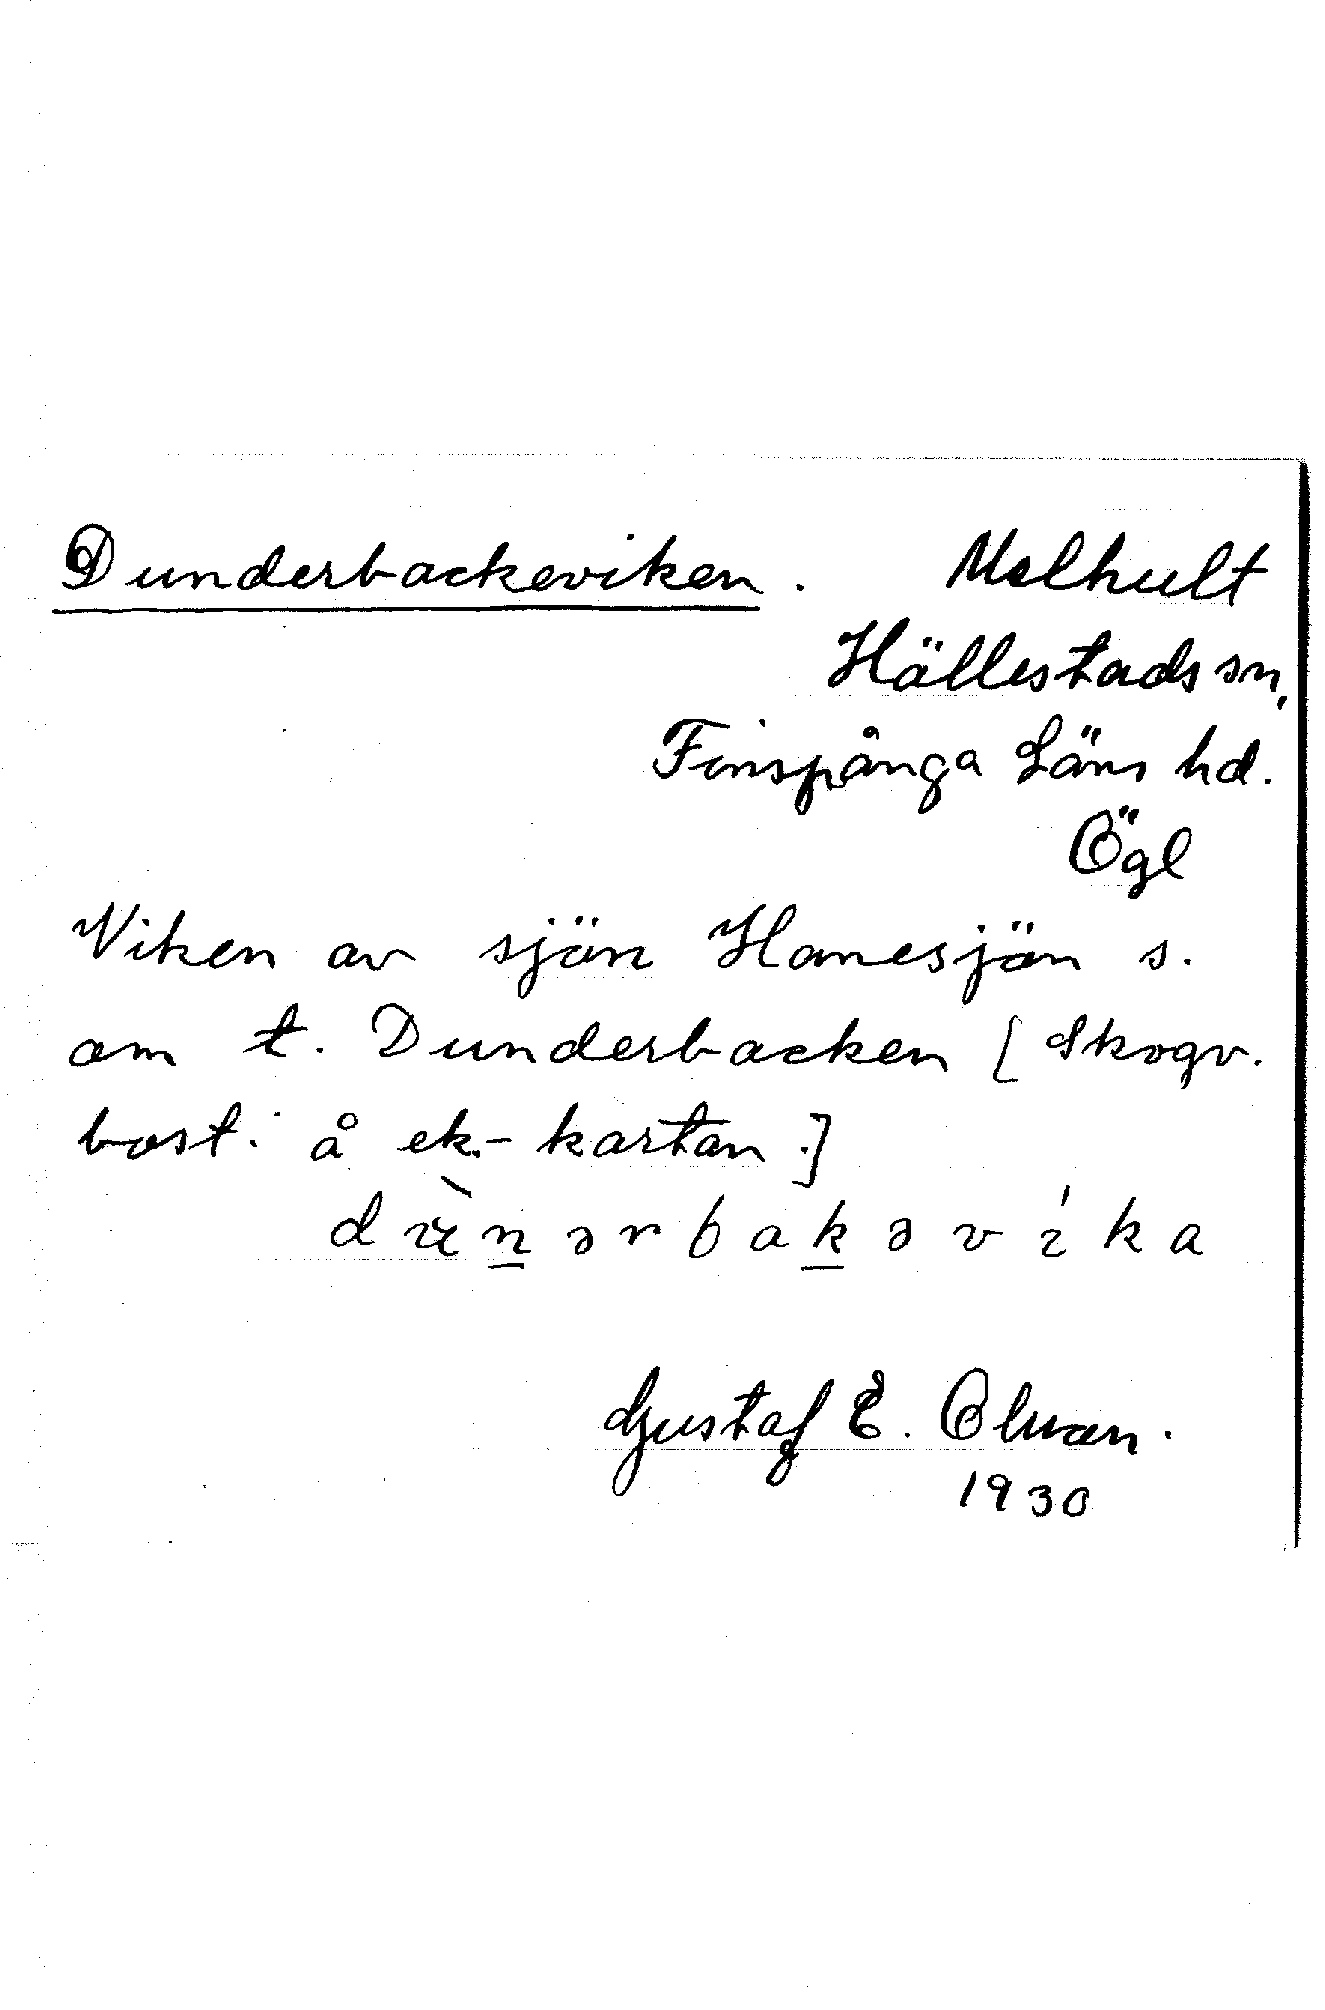 Dunderbackeviken. Melhult
Hällestads sn,
Finspånga Läns hd.
Ögl
Viken av sjön Honesjön s.
om t. Dunderbacken [Skogv.
bost. å ek.-kartan.]
dùn̲ərbak̲əvíka
Gustaf E. Olsson.
1930